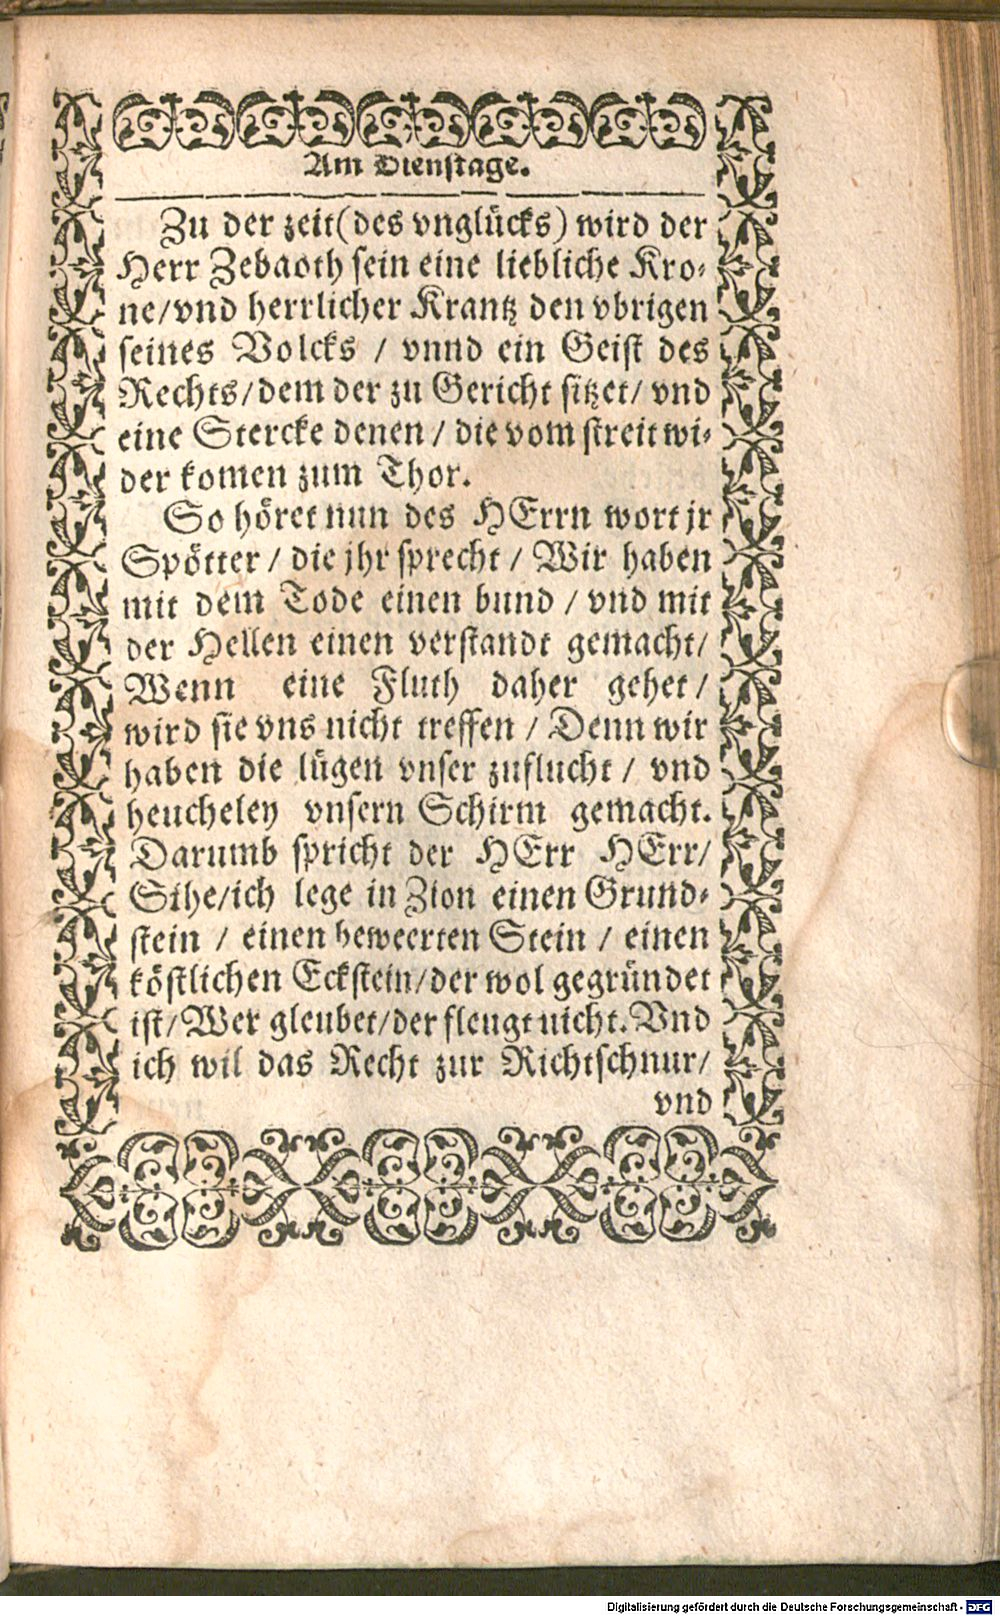 Am Dienstage.
Zu der zeit (des vnglücks) wird der
Herr Zebaoth sein eine liebliche Kro-
ne/vnd herrlicher Krantz den vbrigen
seines Volcks / vnnd ein Geist des
Rechts/dem der zu Gericht sitzet/ vnd
eine Stercke denen / die vom streit wi-
der komen zum Thor.
So höret nun des HErrn wort jr
Spötter / die jhr sprecht / Wir haben
mit dem Tode einen bund / vnd mit
der Hellen einen verstandt gemacht/
Wenn eine Fluth daher gehet /
wird sie vns nicht treffen / Denn wir
haben die lügen vnser zuflucht / vnd
heucheley vnsern Schirm gemacht.
Darumb spricht der HErr HErr/
Sihe/ich lege in Zion einen Grund-
stein / einen beweerten Stein / einen
köstlichen Eckstein/der wol gegründet
ist/Wer gleubet/der fleugt nicht. Vnd
ich wil das Recht zur Richtschnur/
vnd
Digitalisierung gefördert durch die Deutsche Forschungsgemeinschaft - DFG